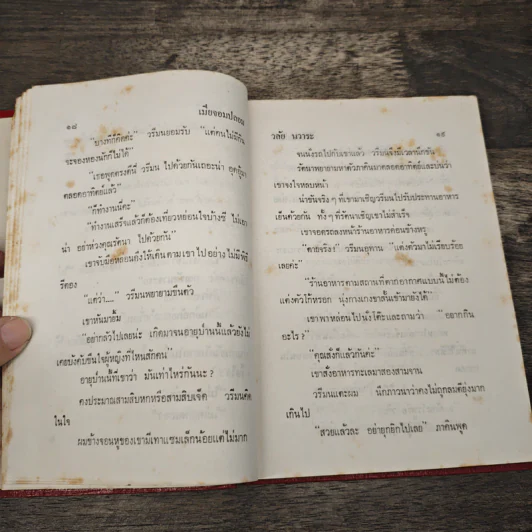 ๑๘
เมียจอมปลอม
“บางทีก็คิดค่ะ” วรีมนยอมรับ “แต่คนไม่มีกิน
จะจองหองนักก็ไม่ได้”
“เธอพูดตรงดีนี่ วรีมน ไปด้วยกันเถอะน่า
คลอดอาทิตย์แล้ว”
“ก็ทำงานนี่คะ”
“ทำงานเสร็จแล้วก็ต้องเที่ยวหย่อนใจบ้างซี ไม่เอา
น่า อย่าห่วงคุณรัตนา ไปด้วยกัน”
เขาจับมือหล่อนดึงให้เดินตามเขาไปอย่างไม่มีพิธี
รีตอง
“แต่ว่า....” วรีมนพยายามขืนตัว
เขาหันมายิ้ม
อย่ากลัวไปเลยน่ะ เกิดมาจนอายุป่านนี้แล้วยังไม่
เคยบังคับขืนใจผู้หญิงที่ไหนสักคน”
อายุป่านนี้ที่เขาว่า มันเท่าไหร่กันนะ ?
คงประมาณสามสิบหกหรือสามสิบเจ็ด วรีมนคิด
ในใจ
ผมข้างจอนหูของเขามีเทาแซมเล็กน้อยแต่ไม่มาก
วลัย นวาระ
๑๙
จนนั่งรถไปกับเขาแล้ว วรีมนจึงมีเวลานึกขัน
รัตนาพยายามหาตัวภาคินมาตลอดอาทิตย์และบ่นว่า
เขาจงใจหลบหน้า
น่าขันจริงๆ ที่เขามาเชิญวรีมนไปรับประทานอาหาร
เย็นด้วยกัน ทั้งๆ ที่รัตนาเชิญเขาไม่สำเร็จ
เขาจอดรถลงหน้าร้านอาหารค่อนข้างหรู
“ตายจริง!” วรีมนอุทาน “แต่งตัวมาไม่เรียบร้อย
เลยค่ะ”
“ร้านอาหารตามสถานที่ตากอากาศแบบนี้ไม่ต้อง
แต่งตัวโก้หรอก นุ่งกางเกงขาสั้นเข้ามายังได้
เขาพาหล่อนไปนั่งโต๊ะและถามว่า “อยากกิน
อะไร ?”
“คุณสั่งก็แล้วกันค่ะ”
เขาสั่งอาหารทะเลมาสองสามจาน
วรีมนแตะผม นึกภาวนาว่าคงไม่ถูกลมตียุ่งมาก
เกินไป
“สวยแล้วละ อย่ายุกยิกไปเลย” ภาคินพูด